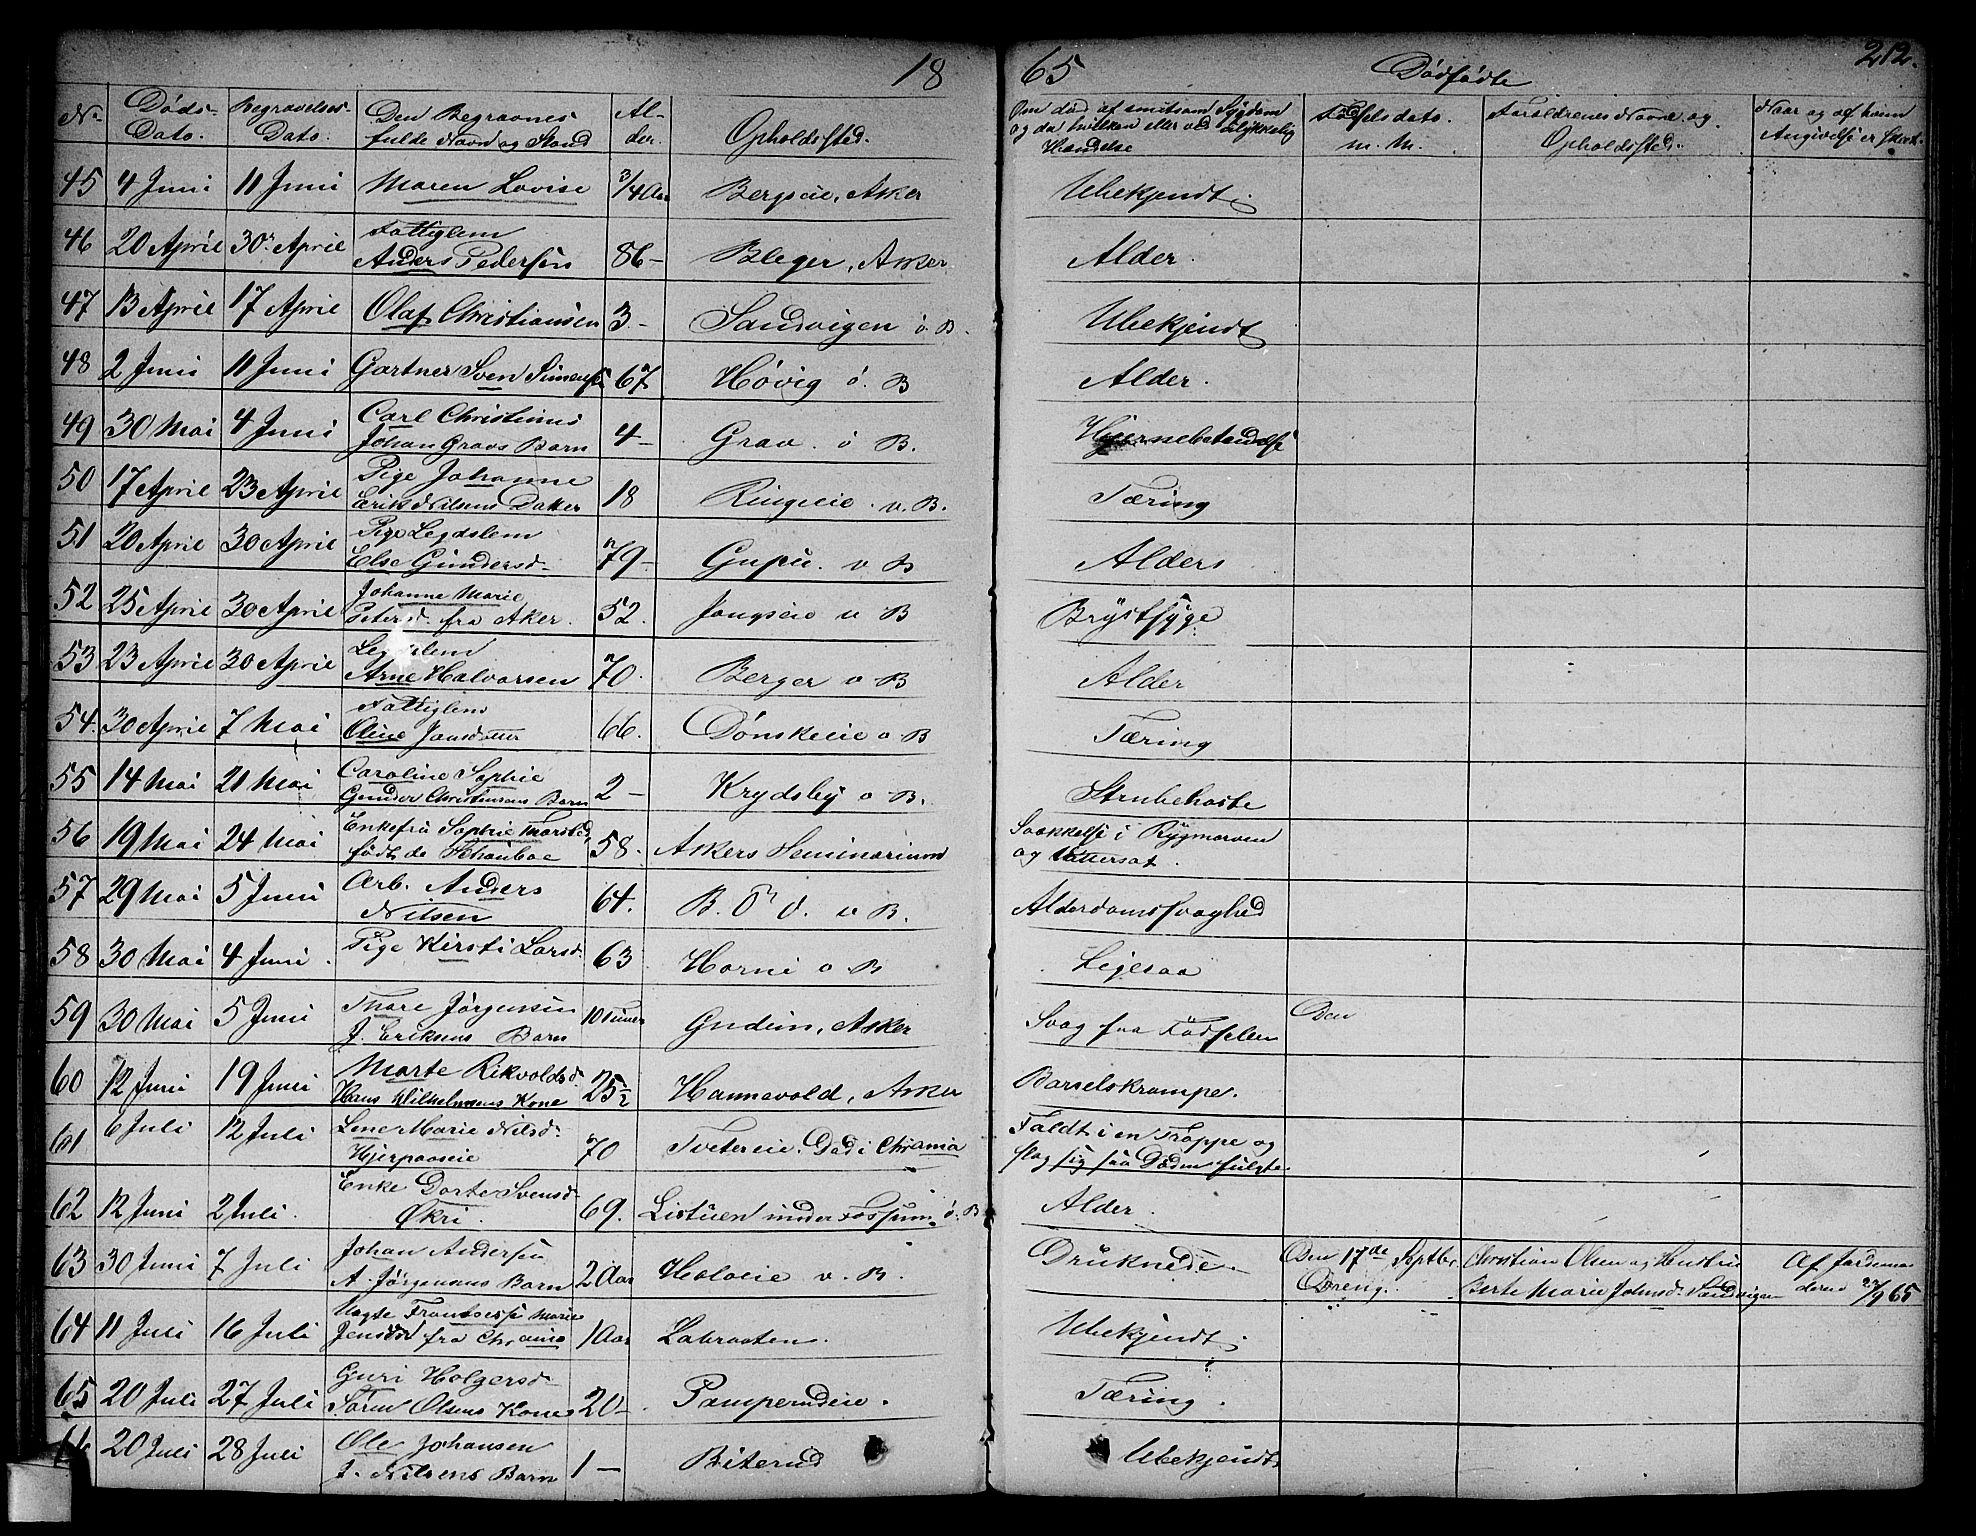 18 65 Dødfødte 212.
No Døds-Dato. Begravelses-Dato. Den Begravnes fulde Navn og Stand Al-der. Opholdssted. Om død af smitsom Sygdom og da hvilken eller ved Ulykkelig Hændelse Fødselsdato. m. M. Forældrenes Navne og Opholdssted. Naar og af hvem Angivelse er skeet.
45 4 Juni 11 Juni Maren Lovise 3/4 Aar Bergseie, Asker Ubekjendt.
46 20 April 30 April Fattiglem Anders Pedersen 86- Bleger, Asker Alder.
47 13 April 17 April Olaf Christiansen 3- Sandvigen ø. B. Ubekjendt
48 2 Juni 11 Juni Gartner Sven Simensen 67 Høvig ø. B Alder.
49 30 Mai 4 Juni Carl Christinus Johan Gravs Barn 4- Grav ø B. Hjernebetændelse
50 17 April 23 April Pige Johanne Erik Nilsens Datter 18 Ringieie v. B. Tæring
51 20 April 30 April Pige Legdslem Else Gundersd- 79- Gupu. v B Alders
52 25 April 30 April Johanne Marie Petersd. fra Aker. 52. Jongseie v B Brystsyge
53 23 April 30 April Legdslem Arne Halvorsen 70. Berger v B Alder
54. 30 April 7 Mai Fattiglem Oline Jansdatter 66. Dønskeie ø B Tæring
55 14 Mai 21 Mai Caroline Sophie Gunder Christensens Barn 2- Krydsby ø B. Strubehoste
56 19 Mai 24 Mai Enkefru Sophie født de 58. Askers Seminarium Svækkelse i Rygmarven og
57 29 Mai 5 Juni Arb. Anders Nilsen 64. v B. Alderdomssvaghed
58 30 Mai 4 Juni. Pige Kirsti Larsd. 63 Horni ø B Ligesaa
59 30 Mai 5 Juni Thore Jørgensen J. Eriksens Barn 10 Timer Gudem, Asker Svag fra Fødselen Den
60 12 Juni 19 Juni Marte Rikvoldsd. Hans Wilhelmsens Kone 25½ Hannevold, Asker Barselskrampe.
61 6 Juli 12 Juli Lene Marie Nilsd- Hjerpaaseie 70 Tvetereie. Død i Chrania Faldt i en Trappe og slog sig saa Døden fulgte
62 12 Juni 2 Juli. Enke Dorte Svensd- Økri. 69. Listuen under Fossum. ø. B Alder.
63 30 Juni 7 Juli Johan Andersen A. Jørgensens Barn 2 Aar Holoeie v. B. Druknede. Den 17de Septbr. Dreng. Christian Olsen og Hustru Berte Marie Johnsd. Sandvigen Af Jordemoderen 22/9 65
64 11 Juli 16 Juli Marie fra Chrania 1 Aar Løkraaten. Ubekjendt.
65 20 Juli 27 Juli Guri Holgersd- Søren Olsens Kone 20-. Pamperudeie. Tæring.
66 20 Juli 28 Juli Ole Johansen J. Nilsens Barn 1- Biterud Ubekjendt